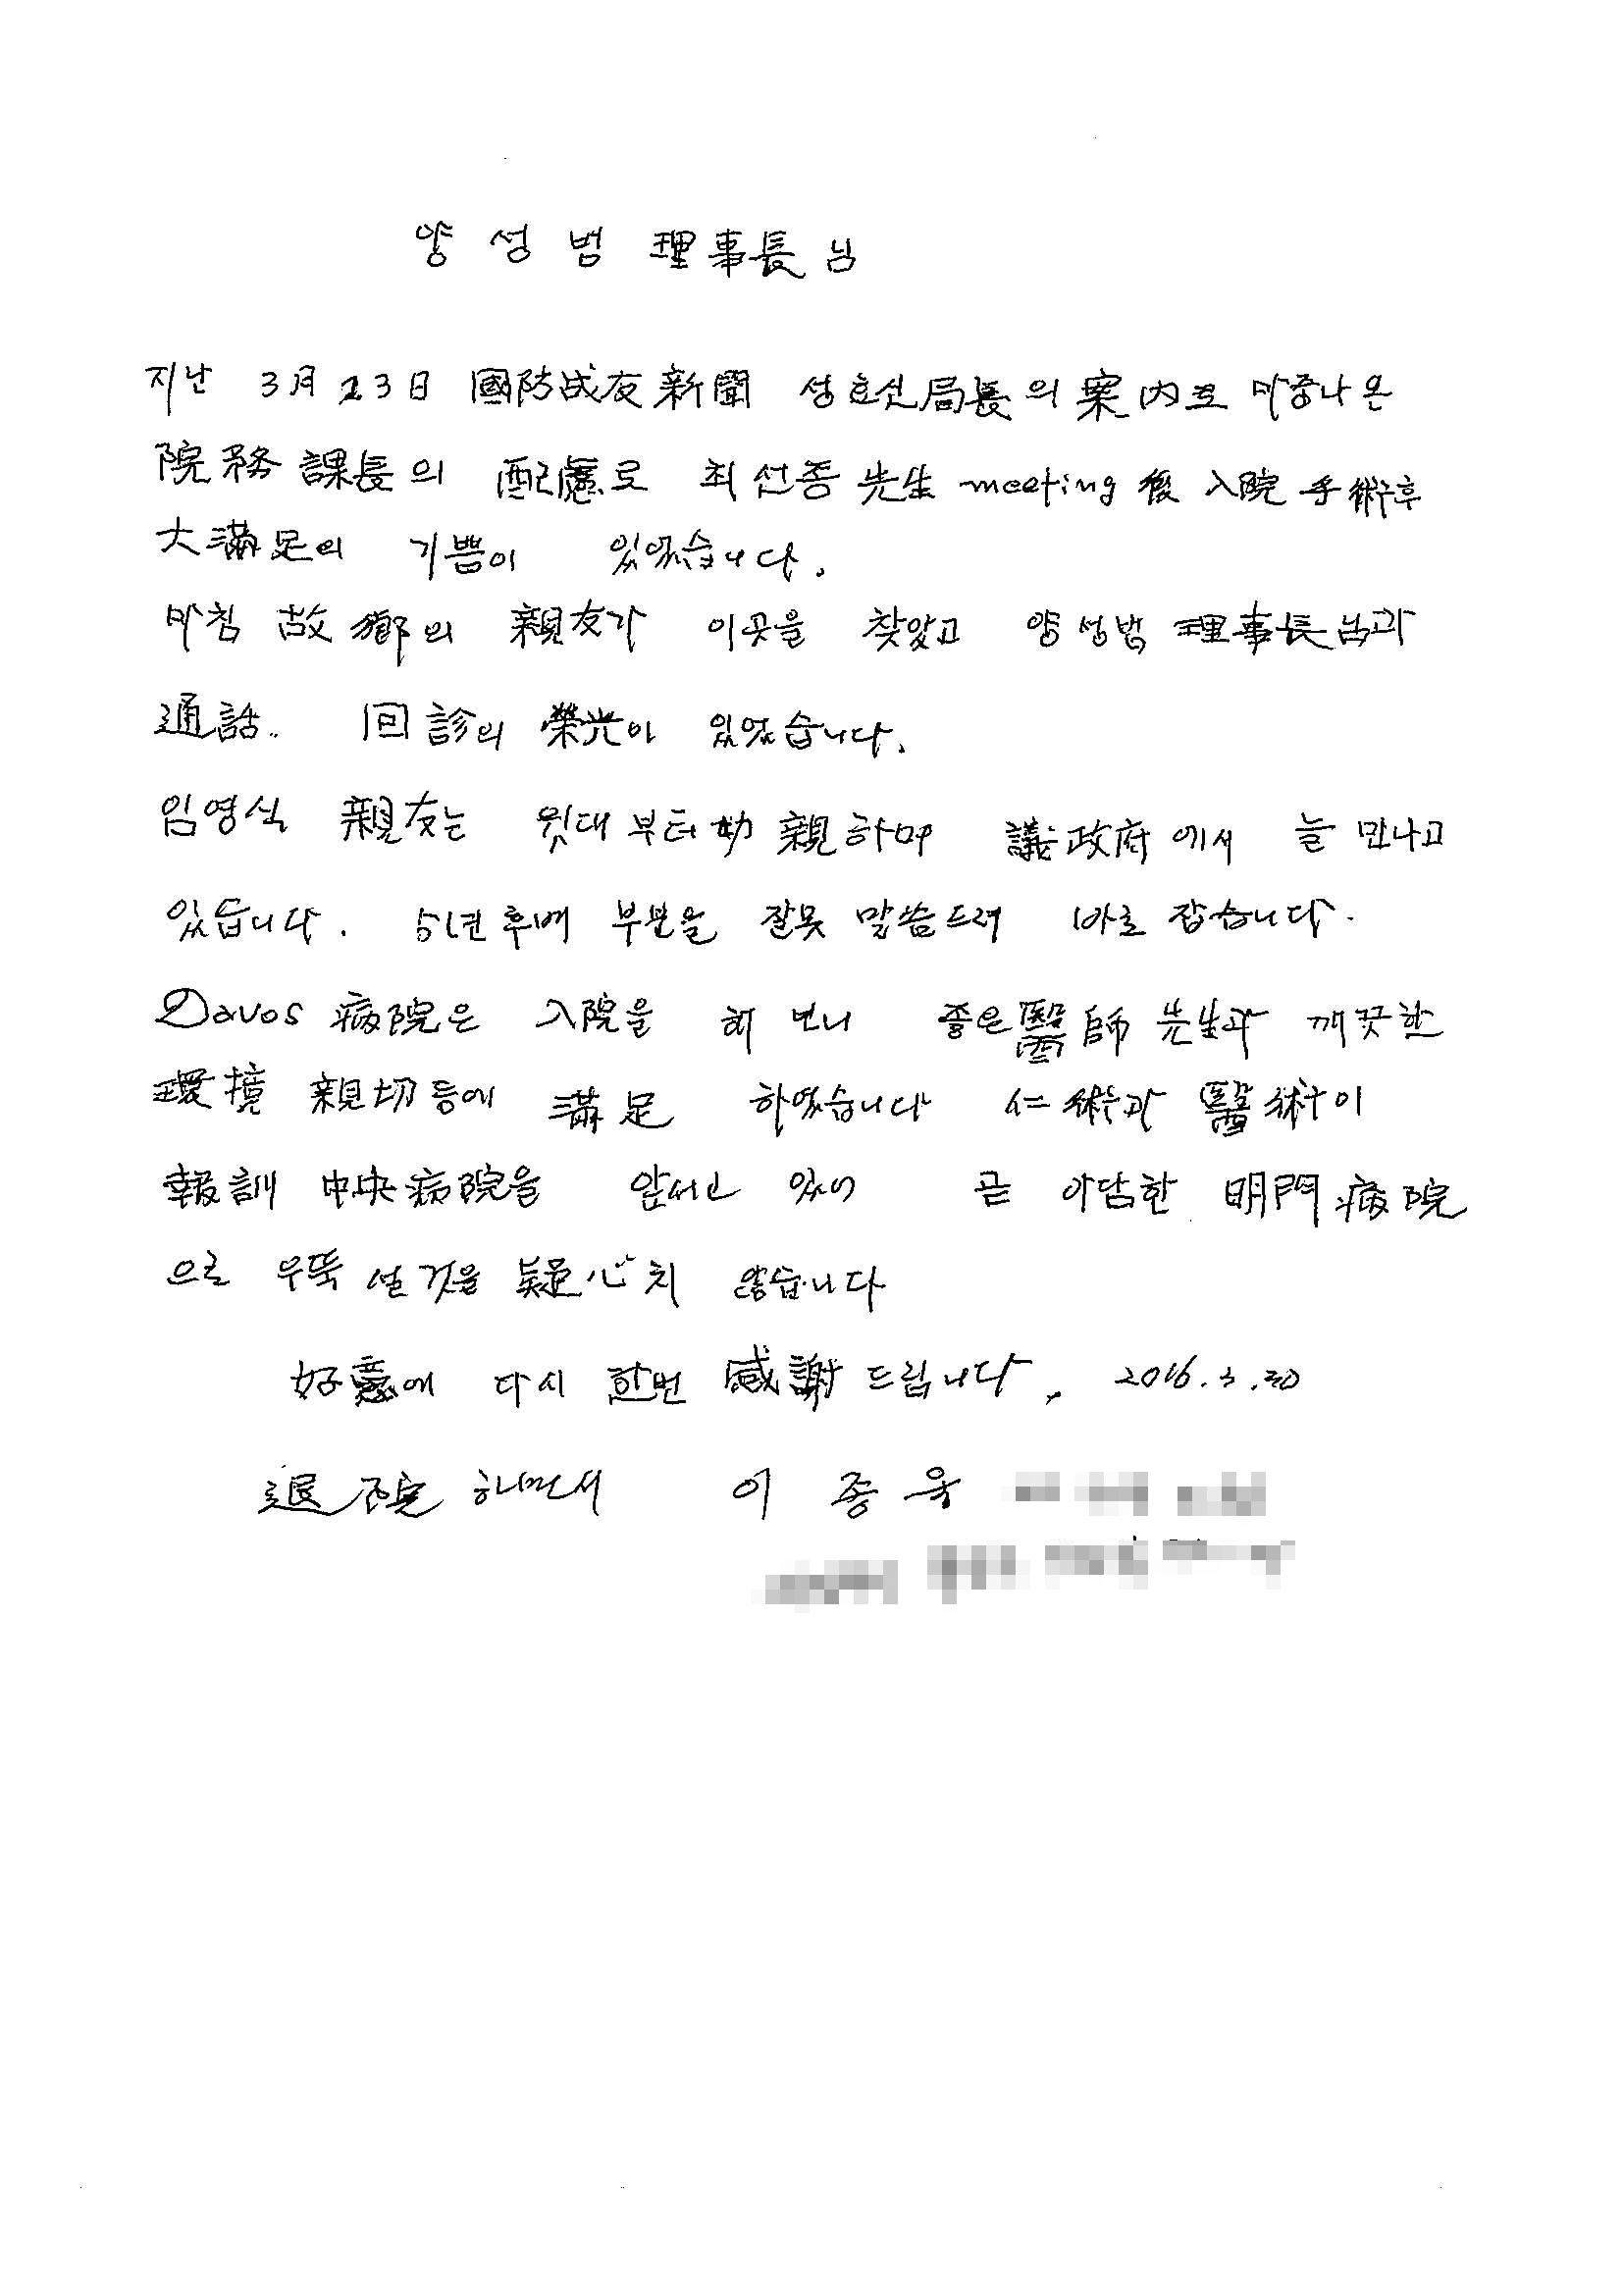 양성범 理事長님
지난 3月 23日 國防战友新聞 성호선局長의 案內로 마중나온
院务課長의 配慮로 최선종先生 meeting後 入院 手術후
大滿足의 기쁨이 있었습니다.
마침 故鄕의 親友가 이곳을 찾았고 양성범 理事長님과
通話.. 回診의 榮光이 있었습니다.
임영식 親友는 윗대부터 親하며 議政府에서 늘 만나고
있습니다. 5년후배 부분을 잘못 말씀드려 바로 잡습니다.
Davos 病院은 入院을 해 보니 좋은 醫師 先生과 깨끗한
環境 親切등에 滿足 하였습니다 仁術과 醫術이
報訓 中央病院을 앞서고 있어 곧 아담한 明門病院
으로 우뚝 설것을 疑心치 않습니다
好意에 다시 한번 感謝드립니다. 2016.3.30
退院하면서 이종욱